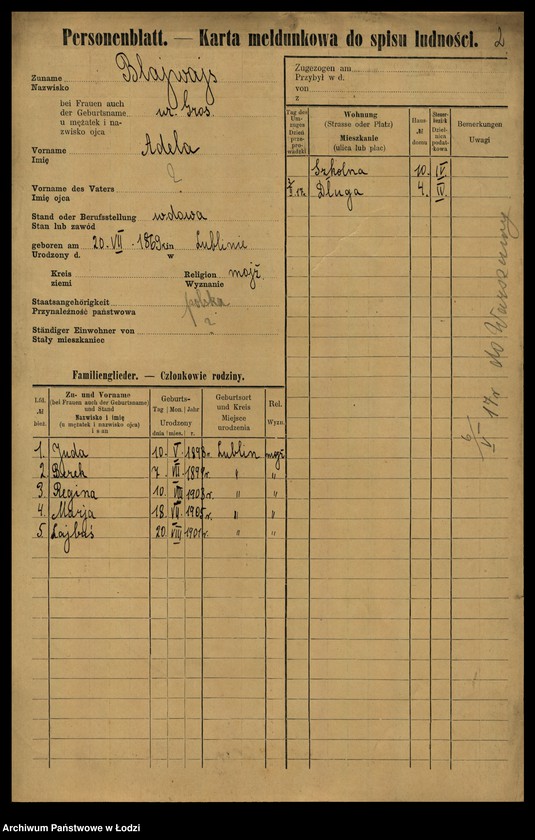 Personenblatt. — Karta meldunkowa do spisu ludności. 2
Zuname Blajwajs
Nazwisko
bei Frauen auch der Geburtsname ur. Gros.
u mężatek i nazwisko ojca
Vorname Adela
Imię
Vorname des Vaters ?
Imię ojca
Stand oder Berufsstellung wdowa
Stan lub zawód
geboren am 20. VII. 1869 in Lublinie
Urodzony d. w
Kreis Religion mojż.
ziemi Wyznanie
Staatsangehörigkeit polska
Przynależność państwowa
Ständiger Einwohner von ?
Stały mieszkaniec
Zugezogen am
Przybył w d.
von
z
Tag des Umzuges Dzień przeprowadzki
Wohnung (Strasse oder Platz) Mieszkanie (ulica lub plac)
Haus № domu
Steuerbezirk Dzielnica podatkowa
Bemerkungen Uwagi
Szkolna 10. IV
Długa 4. IV.
6/V 17 r do Warszawy
Familienglieder. — Członkowie rodziny.
Lfd. № bież.
Zu- und Vorname (bei Frauen auch der Geburtsname) und Stand Nazwisko i imię (u mężatek i nazwisko ojca) i stan
Geburts- Tag Mon. Jahr Urodzony dnia mies. r.
Geburtsort und Kreis Miejsce urodzenia
Rel. Wyzn.
1. Juda 10. V. 1898 r. Lublin mojż.
2. Berek 7. VII 1899 r. " "
3. Regina 10. VIII 1903 r. " "
4. Marja 18. VII. 1905 r. " "
5. Lajbuś 20. VIII 1901 r. " "
Archiwum Państwowe w Łodzi